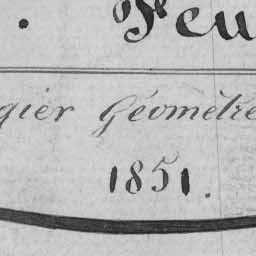 . Feu
gier Géomètre
1851.